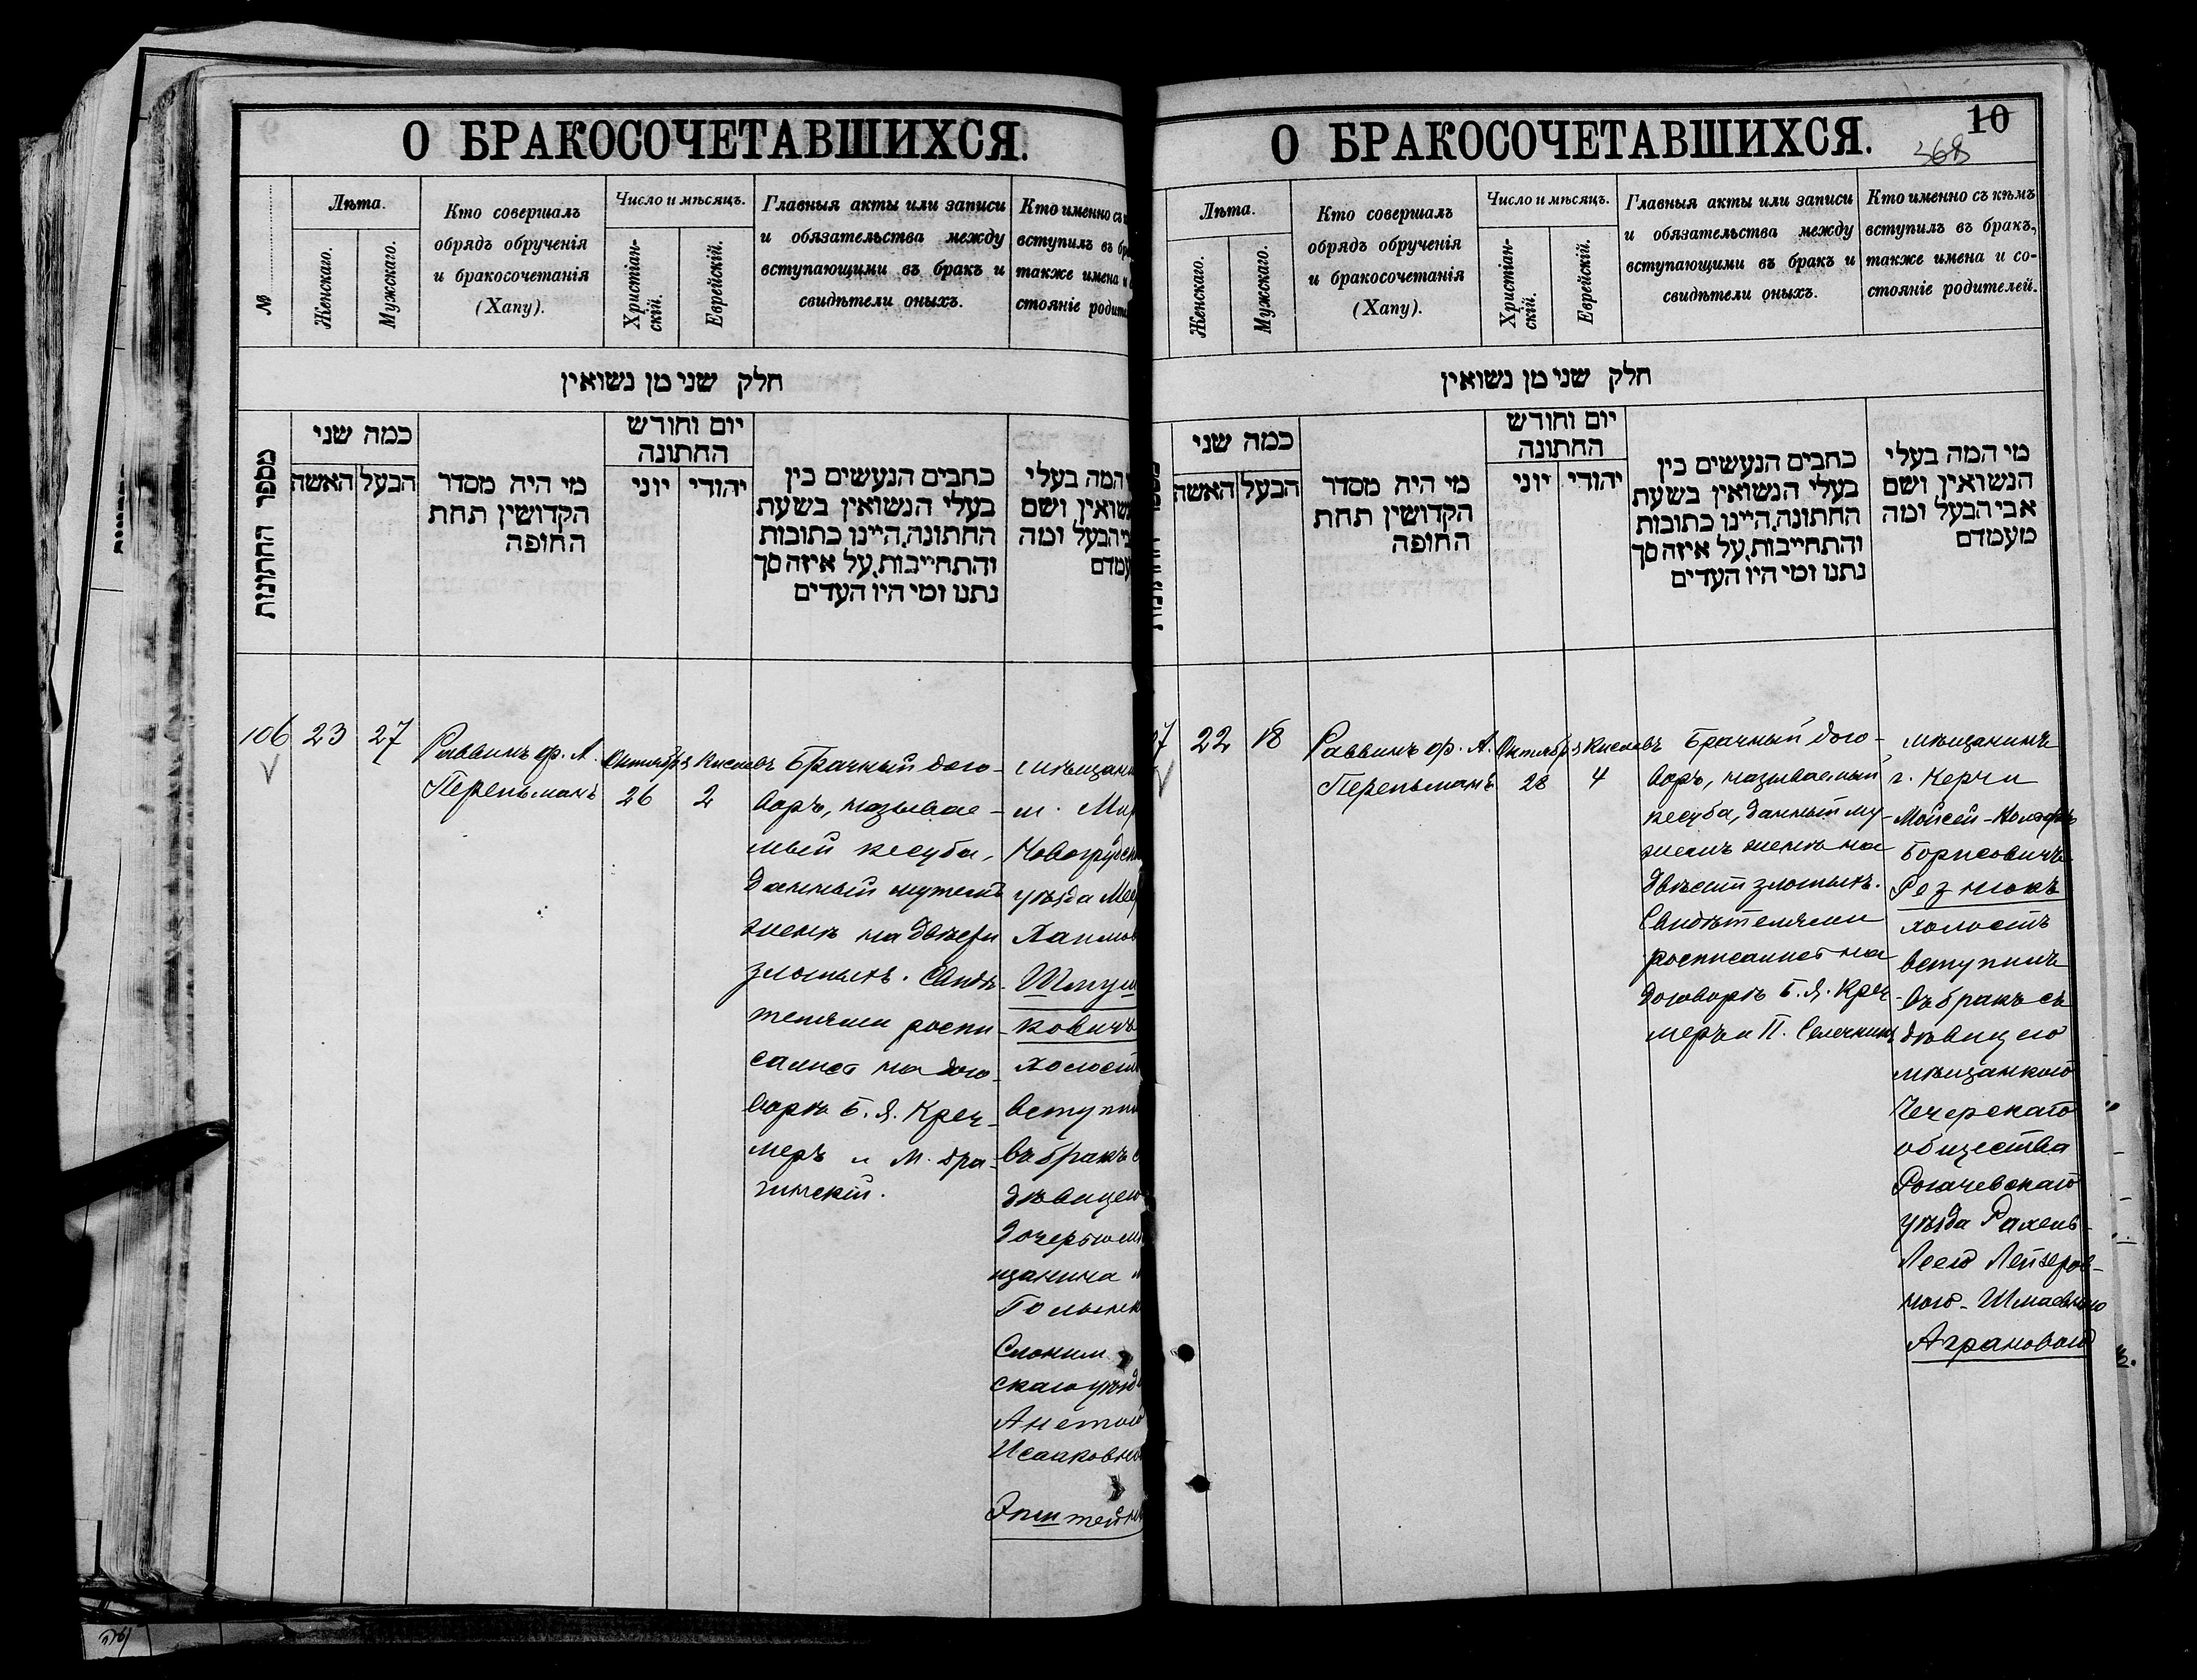 О БРАКОСОЧЕТАВШИХСЯ.
№
Лѣта.
Женскаго.
Мужскаго.
Кто совершалъ
обрядъ обрученія
и бракосочетанія
(Хапу).
Число и мѣсяцъ.
Христіан-
скій.
Еврейскій.
Главныя акты или записи
и обязательства между
вступающими въ бракъ и
свидѣтели оныхъ.
Кто именно съ
вступилъ въ
также имена и
стояніе
חלק שני מן נשואין
מספר החתונות
כמה שני
האשה
הבעל
מי היה מסדר
הקדושין תחת
החופה
יום וחודש
החתונה
יוני
יהודי
כתבים הנעשים בין
בעלי הנשואין בשעת
החתונה, היינו כתובות
והתחייבות, על איזה סך
נתנו ומי היו העדים
המה בעלי
ושם
ומה
106
23
27
Раввинъ ор. А.
Перельманъ
Октября
26
Кислевъ
2
Брачный дого-
воръ, называе-
мый кесуба,
данный мужемъ
женѣ на двѣсти
злотыхъ. Свидѣ-
телями роспи-
сались на дого-
ворѣ Б. Я. Креч-
меръ и М. Дра-
гинскій.
м. Мир
Новогрудск
уѣзда
Хаимов
Шмуш
ковичъ
холостъ
вступил
въ бракъ
дѣвицею
дочерью мѣ
щанина
Голынк
Слоним
скаго уѣзд
Анетою
Исааковно
Эпштейн
О БРАКОСОЧЕТАВШИХСЯ.
10
368
Лѣта.
Женскаго.
Мужскаго.
Кто совершалъ
обрядъ обрученія
и бракосочетанія
(Хапу).
Число и мѣсяцъ.
Христіан-
скій.
Еврейскій.
Главныя акты или записи
и обязательства между
вступающими въ бракъ и
свидѣтели оныхъ.
Кто именно съ кѣмъ
вступилъ въ бракъ,
также имена и со-
стояніе родителей.
חלק שני מן נשואין
כמה שני
האשה
הבעל
מי היה מסדר
הקדושין תחת
החופה
יום וחודש
החתונה
יוני
יהודי
כתבים הנעשים בין
בעלי הנשואין בשעת
החתונה, היינו כתובות
והתחייבות, על איזה סך
נתנו ומי היו העדים
מי המה בעלי
הנשואין ושם
אבי הבעל ומה
מעמדם
7
22
18
Раввинъ ор. А.
Перельманъ
Октября
28
Кислевъ
4
Брачный дого-
воръ, называемый
кесуба, данный му-
жемъ женѣ на
двѣсти злотыхъ.
Свидѣтелями
росписались на
договорѣ Б. Я. Креч-
меръ и П. Селечникъ
мѣщанинъ
г. Керчи
Мойсей-
Борисовичъ
Резникъ
холостъ
вступилъ
въ бракъ съ
дѣвицею
мѣщанкою
Чечерскаго
общества
Рогачевскаго
уѣзда Рахель-
Леею Лейзеров-
ною-Шмаевною
Аграновою